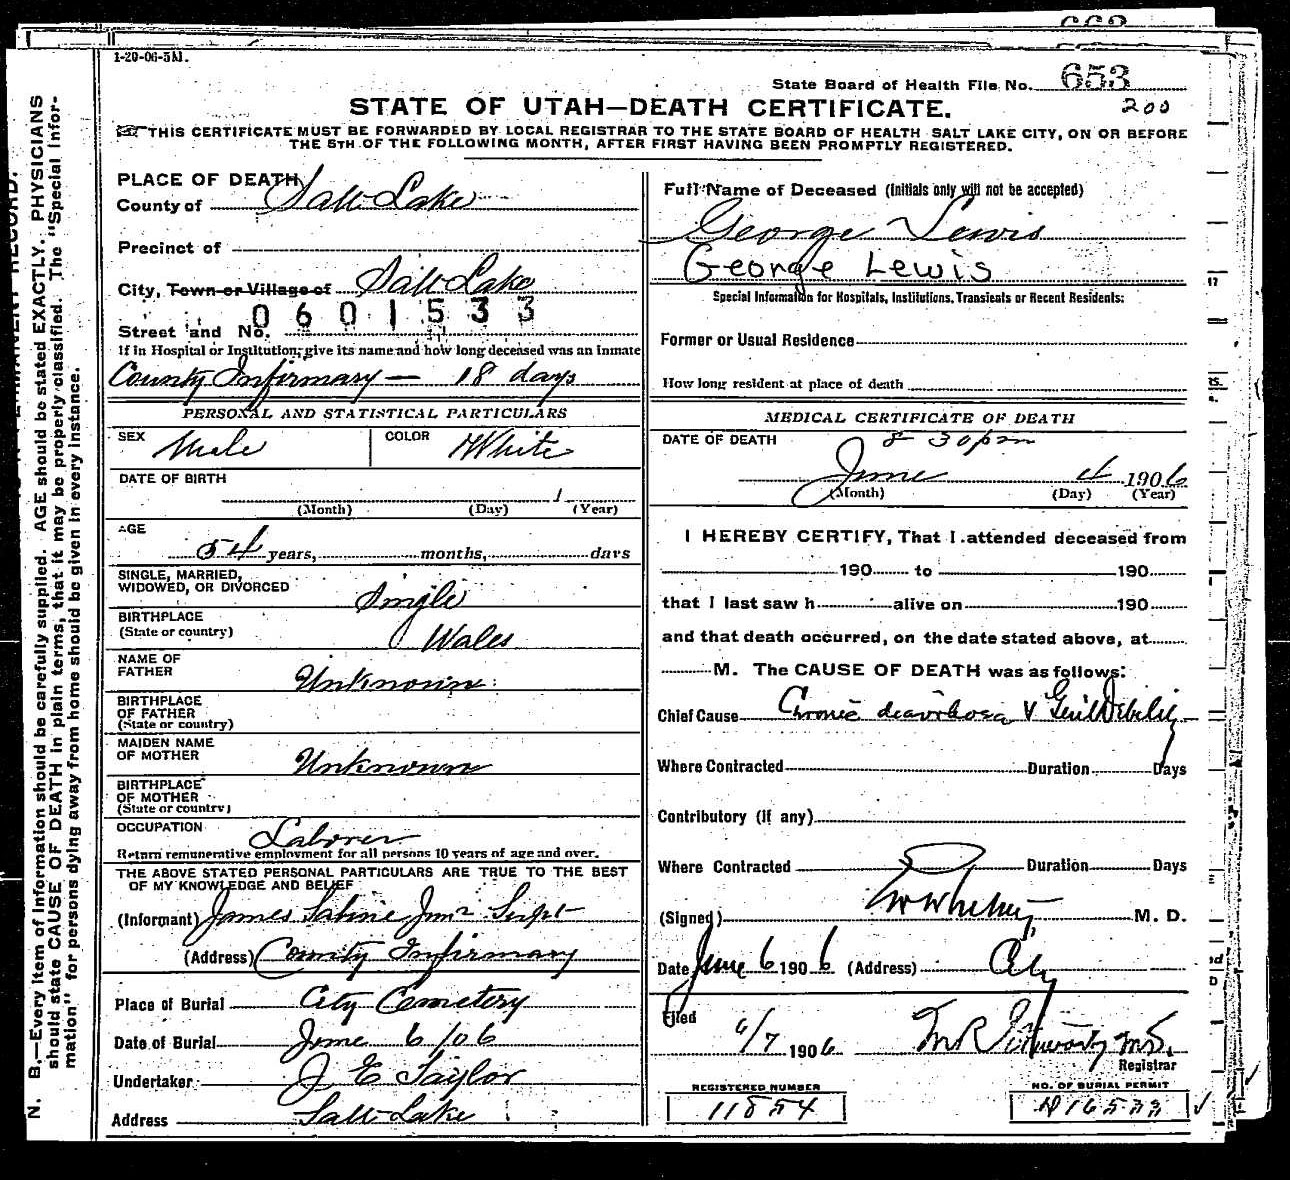 663
1-20-06-5M.
State Board of Health File No. 653
200
STATE OF UTAH—DEATH CERTIFICATE.
THIS CERTIFICATE MUST BE FORWARDED BY LOCAL REGISTRAR TO THE STATE BOARD OF HEALTH SALT LAKE CITY, ON OR BEFORE
THE 5TH OF THE FOLLOWING MONTH, AFTER FIRST HAVING BEEN PROMPTLY REGISTERED.
N. B.—Every item of information should be carefully supplied. AGE should be stated EXACTLY. PHYSICIANS
should state CAUSE OF DEATH in plain terms, that it may be properly classified. The "Special Infor-
mation" for persons dying away from home should be given in every instance.
PLACE OF DEATH
County of Salt Lake
Precinct of
City, Town or Village of Salt Lake
0601533
Street and No.
If in Hospital or Institution, give its name and how long deceased was an inmate
County Infirmary — 18 days
PERSONAL AND STATISTICAL PARTICULARS
SEX Male COLOR White
DATE OF BIRTH
(Month) (Day) (Year)
AGE
54 years, months, days
SINGLE, MARRIED,
WIDOWED, OR DIVORCED Single
BIRTHPLACE
(State or country) Wales
NAME OF
FATHER Unknown
BIRTHPLACE
OF FATHER
(State or country)
MAIDEN NAME
OF MOTHER Unknown
BIRTHPLACE
OF MOTHER
(State or country)
OCCUPATION Laborer
Return remunerative employment for all persons 10 years of age and over.
THE ABOVE STATED PERSONAL PARTICULARS ARE TRUE TO THE BEST
OF MY KNOWLEDGE AND BELIEF
(Informant) James Sabine Jun'r Supt
(Address) County Infirmary
Place of Burial City Cemetery
Date of Burial June 6/06
Undertaker J E Taylor
Address Salt Lake
Full Name of Deceased (Initials only will not be accepted)
George Lewis
George Lewis
Special Information for Hospitals, Institutions, Transients or Recent Residents:
Former or Usual Residence
How long resident at place of death
MEDICAL CERTIFICATE OF DEATH
DATE OF DEATH 8-30 pm
June 4 1906
(Month) (Day) (Year)
I HEREBY CERTIFY, That I attended deceased from
190 to 190
that I last saw h alive on 190
and that death occurred, on the date stated above, at
M. The CAUSE OF DEATH was as follows:
Chief Cause Chronic diarrhoea & Genl Debility
Where Contracted Duration Days
Contributory (if any)
Where Contracted Duration Days
(Signed) M. D.
Date June 6 1906 (Address) City
Filed
6/7 1906
Registrar
REGISTERED NUMBER
11854
NO. OF BURIAL PERMIT